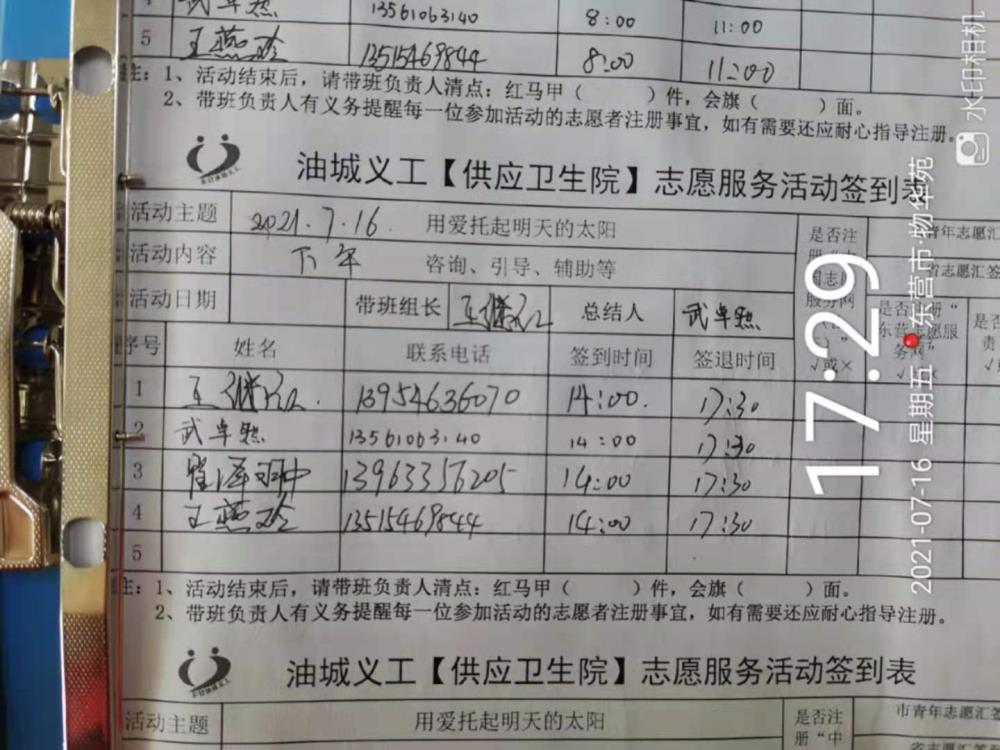 武卓然 13561063140 8:00 11:00
5 王燕玲 13515469844 8:00 11:00
注：1、活动结束后，请带班负责人清点：红马甲（ ）件，会旗（ ）面。
2、带班负责人有义务提醒每一位参加活动的志愿者注册事宜，如有需要还应耐心指导注册。
油城义工【供应卫生院】志愿服务活动签到表
活动主题 2021.7.16 用爱托起明天的太阳 是否注 青年志愿汇
活动内容 下午 咨询、引导、辅助等 省志愿汇签
活动日期 带班组长 总结人 武卓然 服务网
是否注册“ 东营志愿服 务网”
√或×
序号 姓名 联系电话 签到时间 签退时间
1 13954636070 14:00. 17:30
2 武卓然 13561063140 14:00 17:30
3 13963356205 14:00 17:30
4 王燕玲 13515469844 14:00 17:30
5
注：1、活动结束后，请带班负责人清点：红马甲（ ）件，会旗（ ）面。
2、带班负责人有义务提醒每一位参加活动的志愿者注册事宜，如有需要还应耐心指导注册。
油城义工【供应卫生院】志愿服务活动签到表
活动主题 用爱托起明天的太阳 是否注 册“中 市青年志愿汇签
水印相机
17:29
2021-07-16 星期五 东营市·物华苑